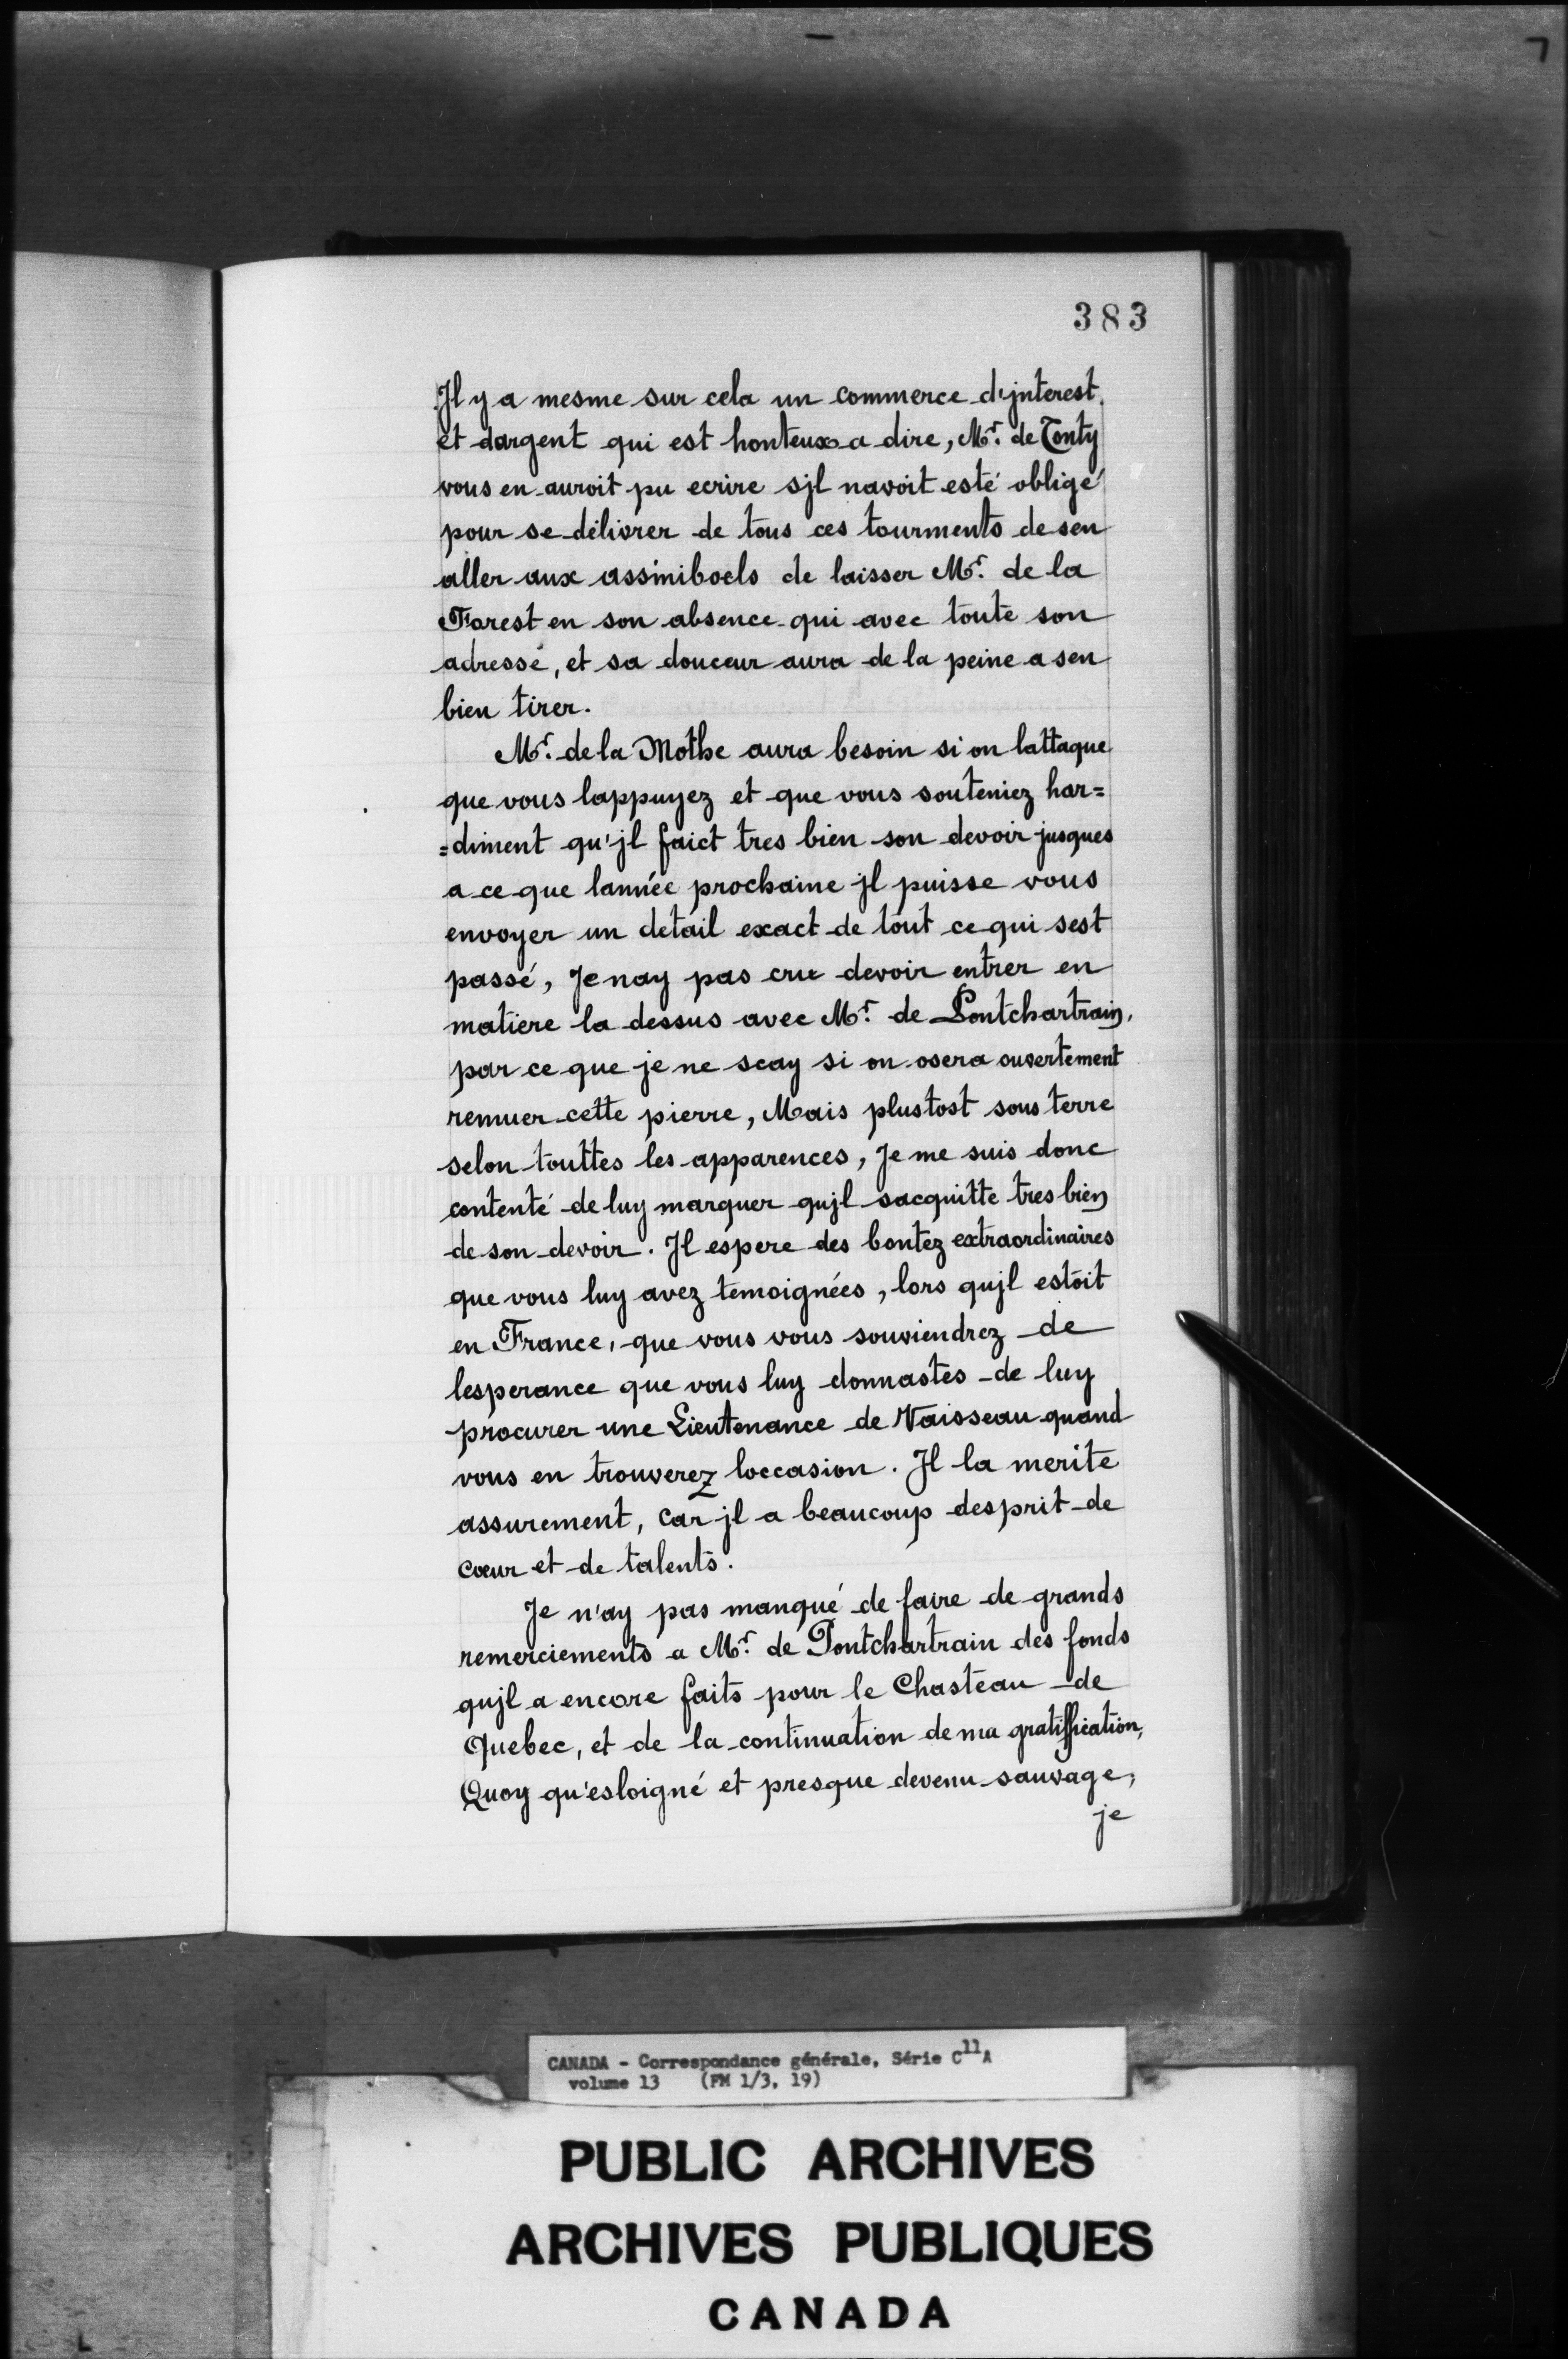 383
Jl y a mesme sur cela un commerce d'jnterest.
et dargent qui est honteux a dire, Mr. de Tonty
vous en auroit pu ecrire sjl navoit esté obligé
pour se délivrer de tous ces tourments de sen
aller aux assiniboels de laisser Mr. de la
Forest en son absence qui avec toute son
adresse, et sa douceur aura de la peine a sen
bien tirer.
Mr. de la Mothe aura besoin si on lattaque
que vous lappuyez et que vous souteniez har=
=diment qu'jl faict tres bien son devoir jusques
a ce que lannée prochaine jl puisse vous
envoyer un detail exact de tout ce qui sest
passé, Je nay pas cru devoir entrer en
matiere la dessus avec Mr. de Pontchartrain,
par ce que je ne scay si on osera ouvertement
remuer cette pierre, Mais plustost sous terre
selon touttes les apparences, Je me suis donc
contenté de luy marquer qujl sacquitte tres bien
de son devoir. Jl espere des bontez extraordinaires
que vous luy avez temoignées, lors qujl estoit
en France, que vous vous souviendrez de
lesperance que vous luy donnastes de luy
procurer une Lieutenance de Vaisseau quand
vous en trouverez loccasion. Jl la merite
assurement, car jl a beaucoup desprit de
coeur et de talents.
Je n'ay pas manqué de faire de grands
remerciements a Mr. de Pontchartrain des fonds
qujl a encore faits pour le Chasteau de
Quebec, et de la continuation de ma gratiffication,
Quoy qu'esloigné et presque devenu sauvage,
je
CANADA - Correspondance générale, Série C11A
volume 13 (FM 1/3, 19)
PUBLIC ARCHIVES
ARCHIVES PUBLIQUES
CANADA